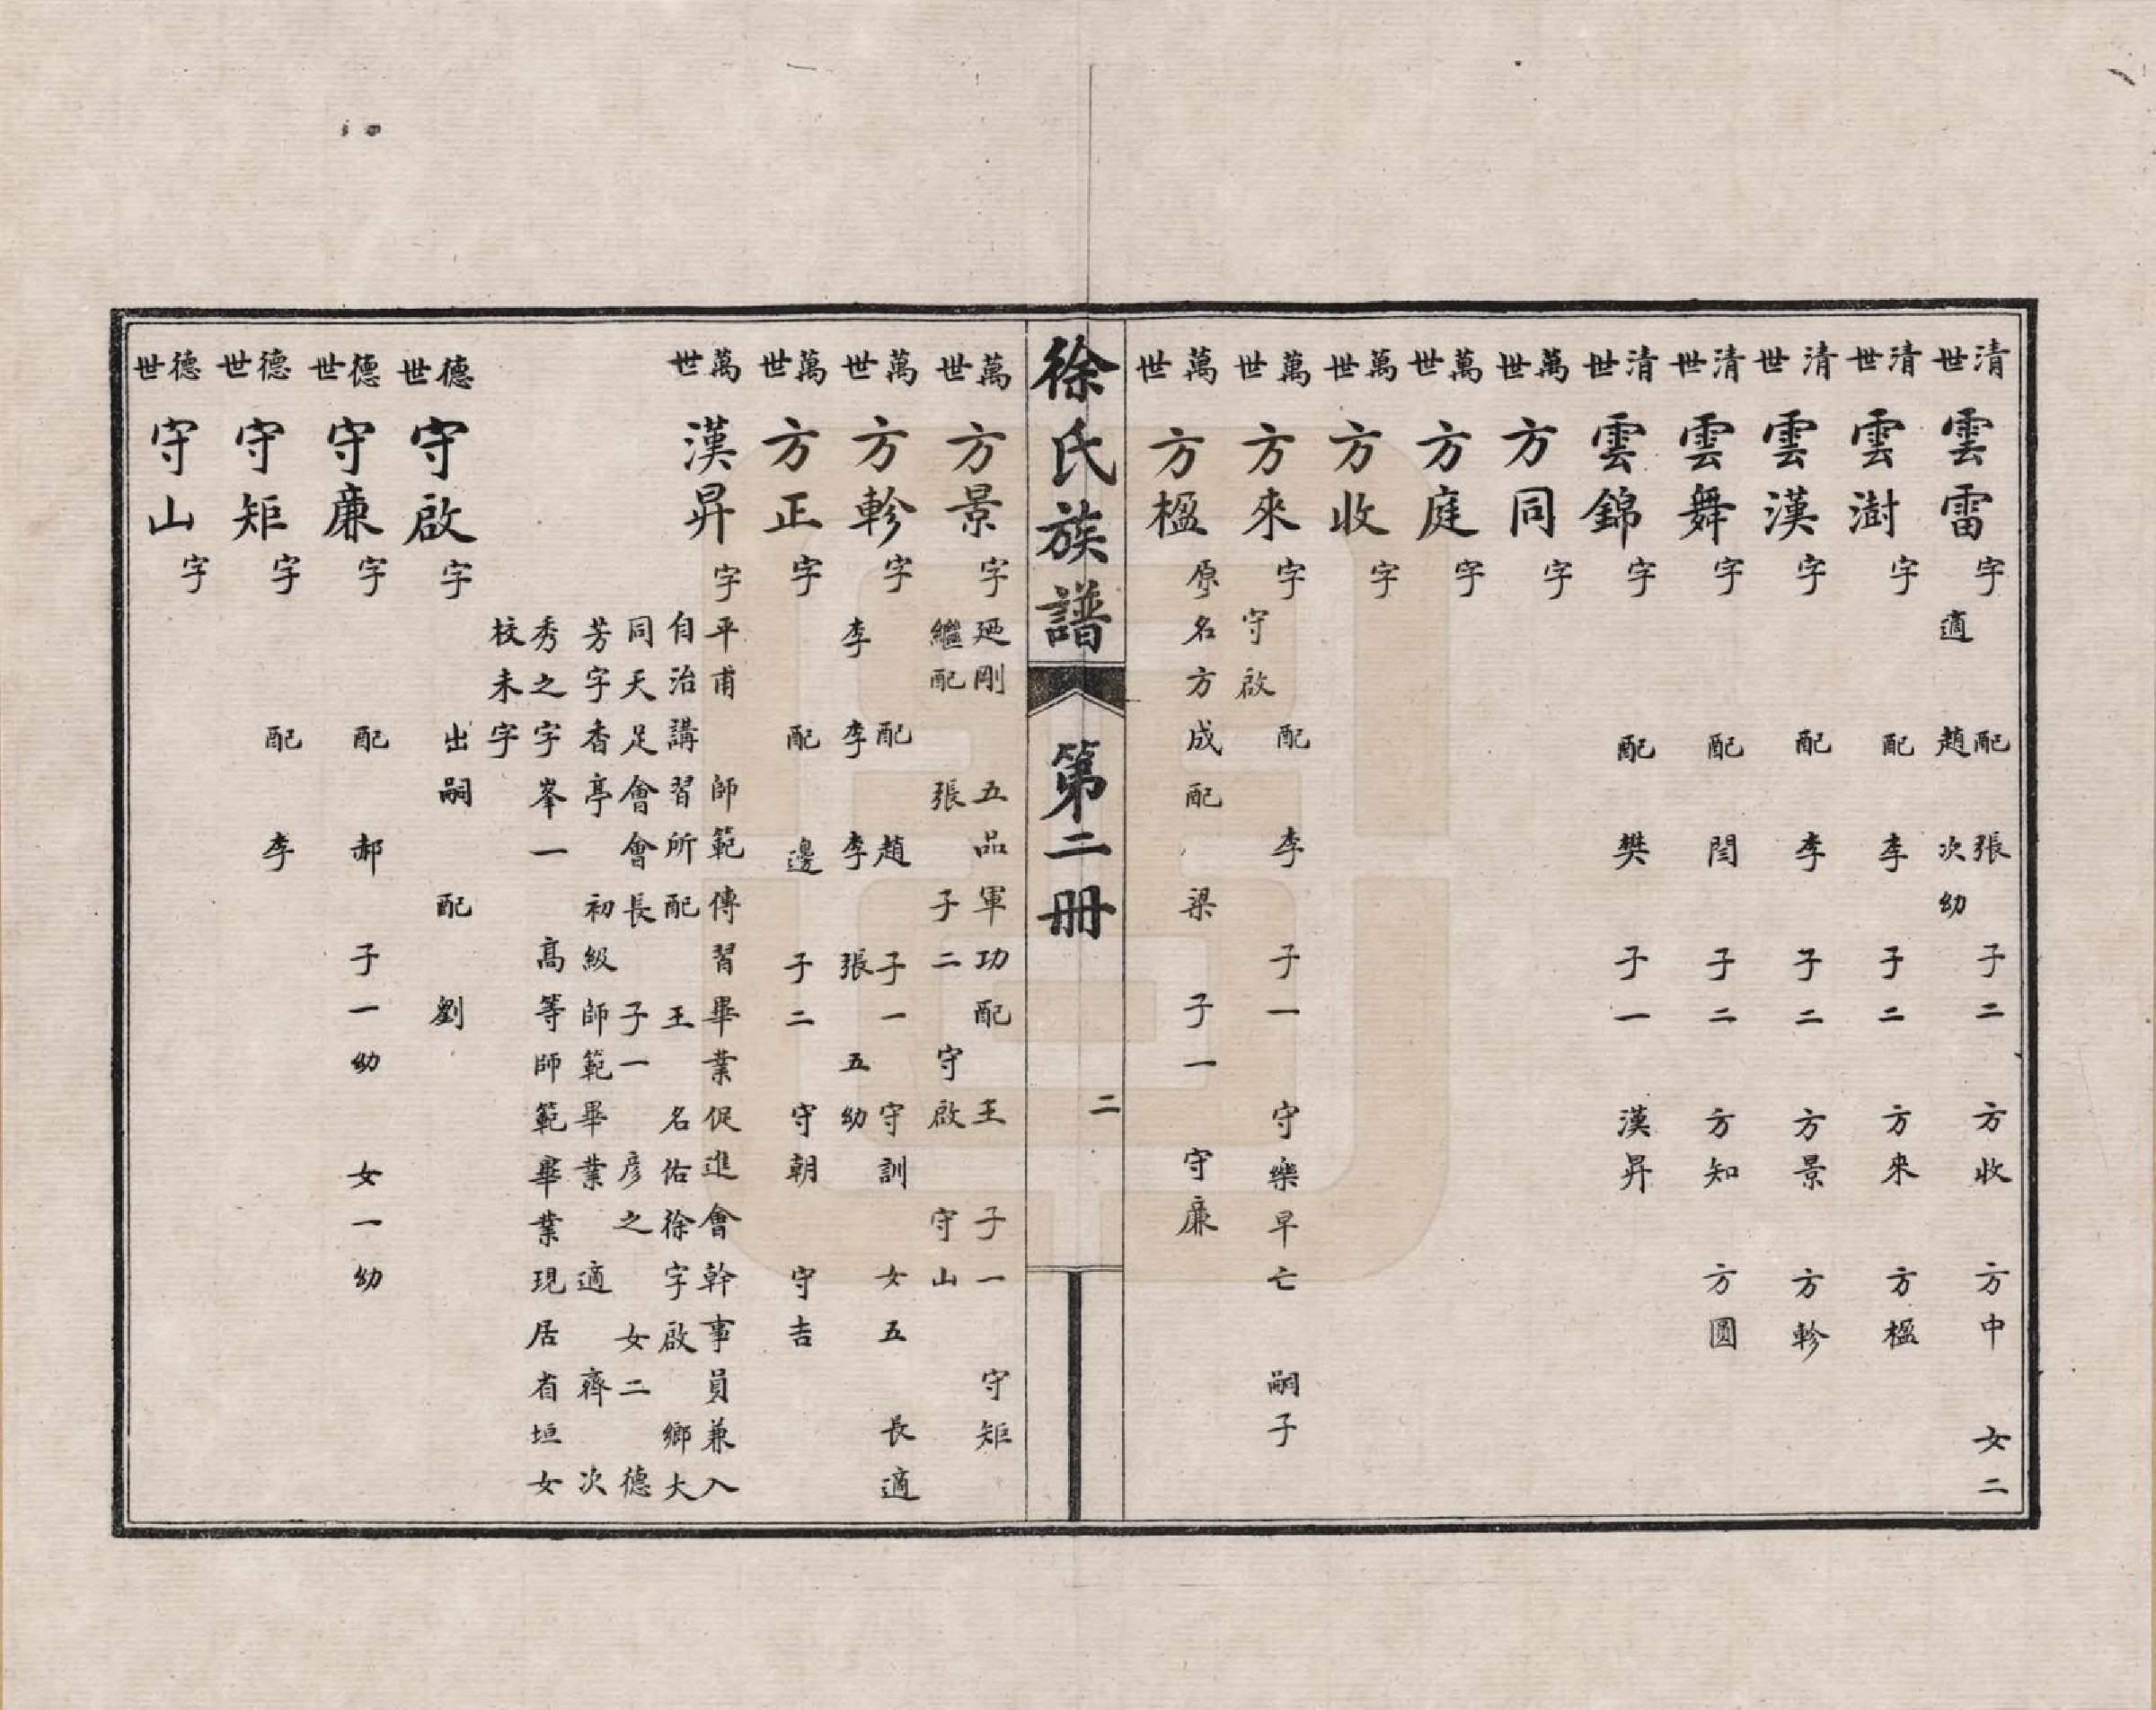 清世 雲雷 字 配 張 子二 方收 方中 女二
適 趙 次幼
清世 雲澍 字 配 李 子二 方來 方楹
清世 雲漢 字 配 李 子二 方景 方軫
清世 雲舞 字 配 閆 子二 方知 方圓
清世 雲錦 字 配 樊 子一 漢昇
萬世 方同 字
萬世 方庭 字
萬世 方收 字
萬世 方來 字 配 李 子一 守樂早亡 嗣子
守啟
萬世 方楹 原名方成配 梁 子一 守廉
徐氏族譜 第二冊 二
萬世 方景 字 廷剛 五品軍功配 王 子一 守矩
繼配 張 子二 守啟 守山
萬世 方軫 字 配 趙 子一 守訓 女五 長適
李 李 李 張 五幼
萬世 方正 字 配 邊 子二 守朝 守吉
萬世 漢昇 字平甫 師範傳習畢業促進會幹事員兼入
自治講習所配 王 名佑徐字啟 鄉大
同天足會會長 子一 彥之 女二 德
芳字香亭 初級師範畢業 適 齊 次
秀之字峯一 高等師範畢業現居省垣女
校未字
德世 守啟 字 出嗣 配 劉
德世 守廉 字 配 郝 子一幼 女一幼
德世 守矩 字 配 李
德世 守山 字